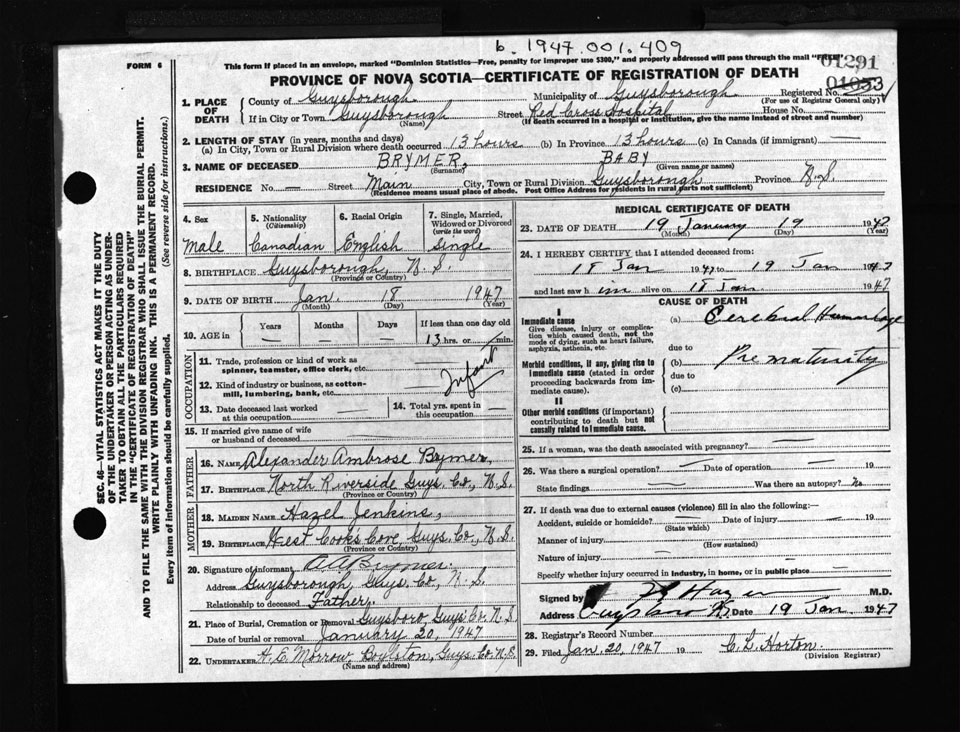 b. 1947.001.409
FORM 6
This form if placed in an envelope, marked "Dominion Statistics—Free, penalty for improper use $300," and properly addressed will pass through the mail "FREE"
01291
PROVINCE OF NOVA SCOTIA—CERTIFICATE OF REGISTRATION OF DEATH
01033
1. PLACE OF DEATH
County of Guysborough Municipality of Guysborough Registered No.
(For use of Registrar General only)
If in City or Town Guysborough Street Red Cross Hospital House No. —
(Name) (If death occurred in a hospital or institution, give the name instead of street and number)
2. LENGTH OF STAY (in years, months and days)
(a) In City, Town or Rural Division where death occurred 13 hours (b) In Province 13 hours (c) In Canada (if immigrant) —
3. NAME OF DECEASED BRYMER, BABY
(Surname) (Given name or names)
RESIDENCE No. — Street Main City, Town or Rural Division Guysborough Province N.S.
(Residence means usual place of abode. Post Office Address for residents in rural parts not sufficient)
4. Sex
Male
5. Nationality (Citizenship)
Canadian
6. Racial Origin
English
7. Single, Married, Widowed or Divorced (write the word)
Single
8. BIRTHPLACE Guysborough, N.S.
(Province or Country)
9. DATE OF BIRTH Jan. 18 1947
(Month) (Day) (Year)
10. AGE in Years Months Days If less than one day old
— — — 13 hrs. or — min.
OCCUPATION
11. Trade, profession or kind of work as spinner, teamster, office clerk, etc.
Infant
12. Kind of industry or business, as cotton-mill, lumbering, bank, etc.
13. Date deceased last worked at this occupation —
14. Total yrs. spent in this occupation —
15. If married give name of wife or husband of deceased —
FATHER
16. NAME Alexander Ambrose Brymer,
17. BIRTHPLACE North Riverside Guys. Co., N.S.
(Province or Country)
MOTHER
18. MAIDEN NAME Hazel Jenkins,
19. BIRTHPLACE West Cooks Cove, Guys. Co., N.S.
(Province or Country)
20. Signature of informant A A Brymer.
Address Guysborough, Guys. Co., N.S.
Relationship to deceased Father.
21. Place of Burial, Cremation or Removal Guysboro, Guys Co. N.S.
Date of burial or removal January 20, 1947
22. UNDERTAKER A. E. Morrow, Boylston, Guys. Co. N.S.
(Name and address)
MEDICAL CERTIFICATE OF DEATH
23. DATE OF DEATH 19 January 19 1947
(Month) (Day) (Year)
24. I HEREBY CERTIFY that I attended deceased from:
18 Jan 1947 to 19 Jan 1947
and last saw him alive on 18 Jan 1947
CAUSE OF DEATH
I
Immediate cause
Give disease, injury or complication which caused death, not the mode of dying, such as heart failure, asphyxia, asthenia, etc.
(a) Cerebral Hemorrhage
due to
Morbid conditions, if any, giving rise to immediate cause (stated in order proceeding backwards from immediate cause).
(b) Prematurity
due to
(c)
II
Other morbid conditions (if important) contributing to death but not causally related to immediate cause.
25. If a woman, was the death associated with pregnancy? —
26. Was there a surgical operation? — Date of operation — 19
State findings — Was there an autopsy? no
27. If death was due to external causes (violence) fill in also the following:—
Accident, suicide or homicide? — Date of injury — 19
(State which)
Manner of injury —
(How sustained)
Nature of injury —
Specify whether injury occurred in industry, in home, or in public place —
Signed by M.D.
Address Guysboro N.S. Date 19 Jan 1947
28. Registrar's Record Number
29. Filed Jan. 20, 1947 19 C. L. Horton.
(Division Registrar)
SEC. 46—VITAL STATISTICS ACT MAKES IT THE DUTY
OF THE UNDERTAKER OR PERSON ACTING AS UNDER-
TAKER TO OBTAIN ALL THE PARTICULARS REQUIRED
IN THE "CERTIFICATE OF REGISTRATION OF DEATH"
AND TO FILE THE SAME WITH THE DIVISION REGISTRAR WHO SHALL ISSUE THE BURIAL PERMIT.
WRITE PLAINLY WITH UNFADING INK. THIS IS A PERMANENT RECORD.
Every item of information should be carefully supplied. (See reverse side for instructions.)